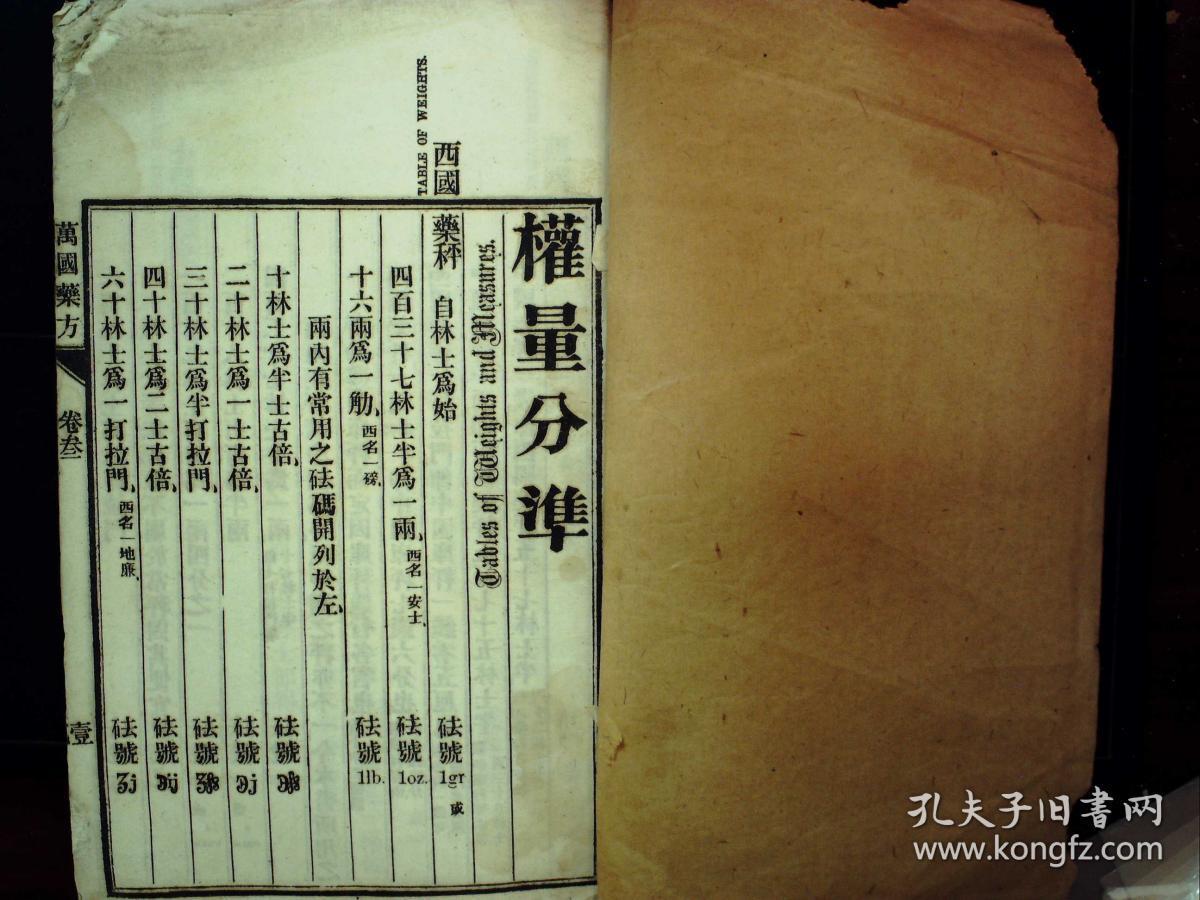 權量分準
Tables of Weights and Measures.
TABLE OF WEIGHTS.
西國藥秤 自林士爲始 砝號 1gr 或
四百三十七林士半爲一兩、西名一安士、 砝號 1oz.
十六兩爲一觔、西名一磅、 砝號 1lb.
兩內有常用之砝碼開列於左、
十林士爲半士古倍、 砝號 ℈ß
二十林士爲一士古倍、 砝號 ℈j
三十林士爲半打拉門、 砝號 ʒß
四十林士爲二士古倍、 砝號 ℈ij
六十林士爲一打拉門、西名一地廉、 砝號 ʒj
萬國藥方 卷叄 壹
孔夫子旧书网
www.kongfz.com